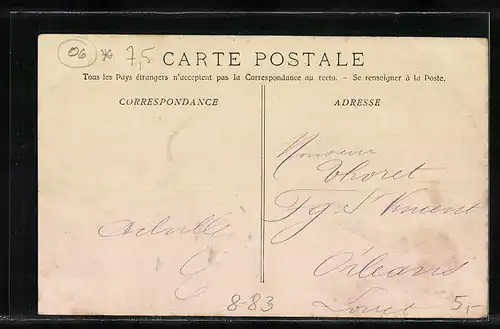 06 * 7,5
CARTE POSTALE
Tous les Pays étrangers n'acceptent pas la Correspondance au recto. - Se renseigner à la Poste.
CORRESPONDANCE
ADRESSE
Monsieur
Thoret
Fg St Vincent
Orléans
Loiret
8-83
5,-